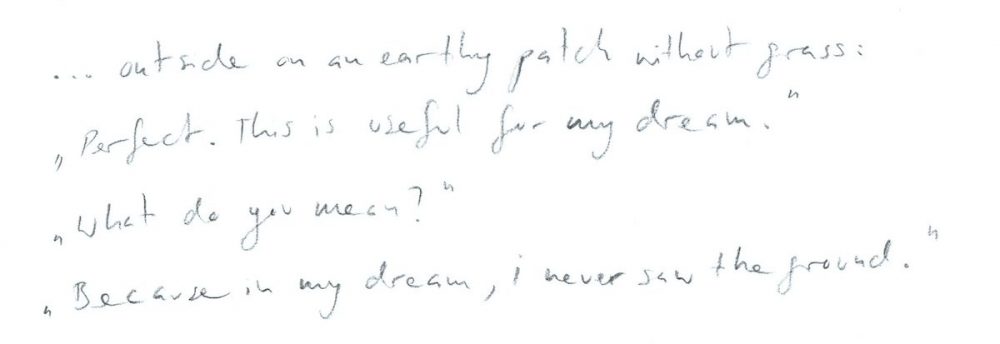 ... outside on an earthy patch without grass:
„Perfect. This is useful for my dream."
„What do you mean?"
„Because in my dream, i never saw the ground."